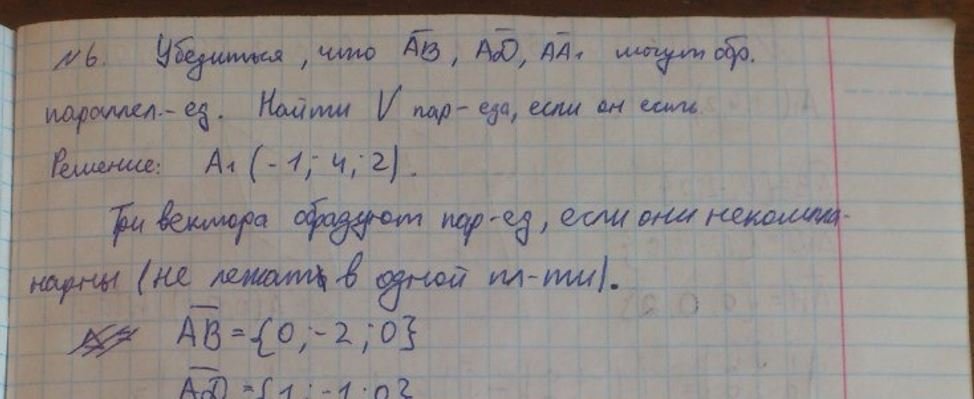 №6. Убедиться, что AB, AD, AA₁ могут обр.
параллел.-ед. Найти V пар-еда, если он есть.
Решение: A₁ (-1; 4; 2).
Три вектора образуют пар-ед, если они некомпла-
нарны (не лежат в одной пл-ти).
AB = {0; -2; 0}
AD = {1; -1; 0}